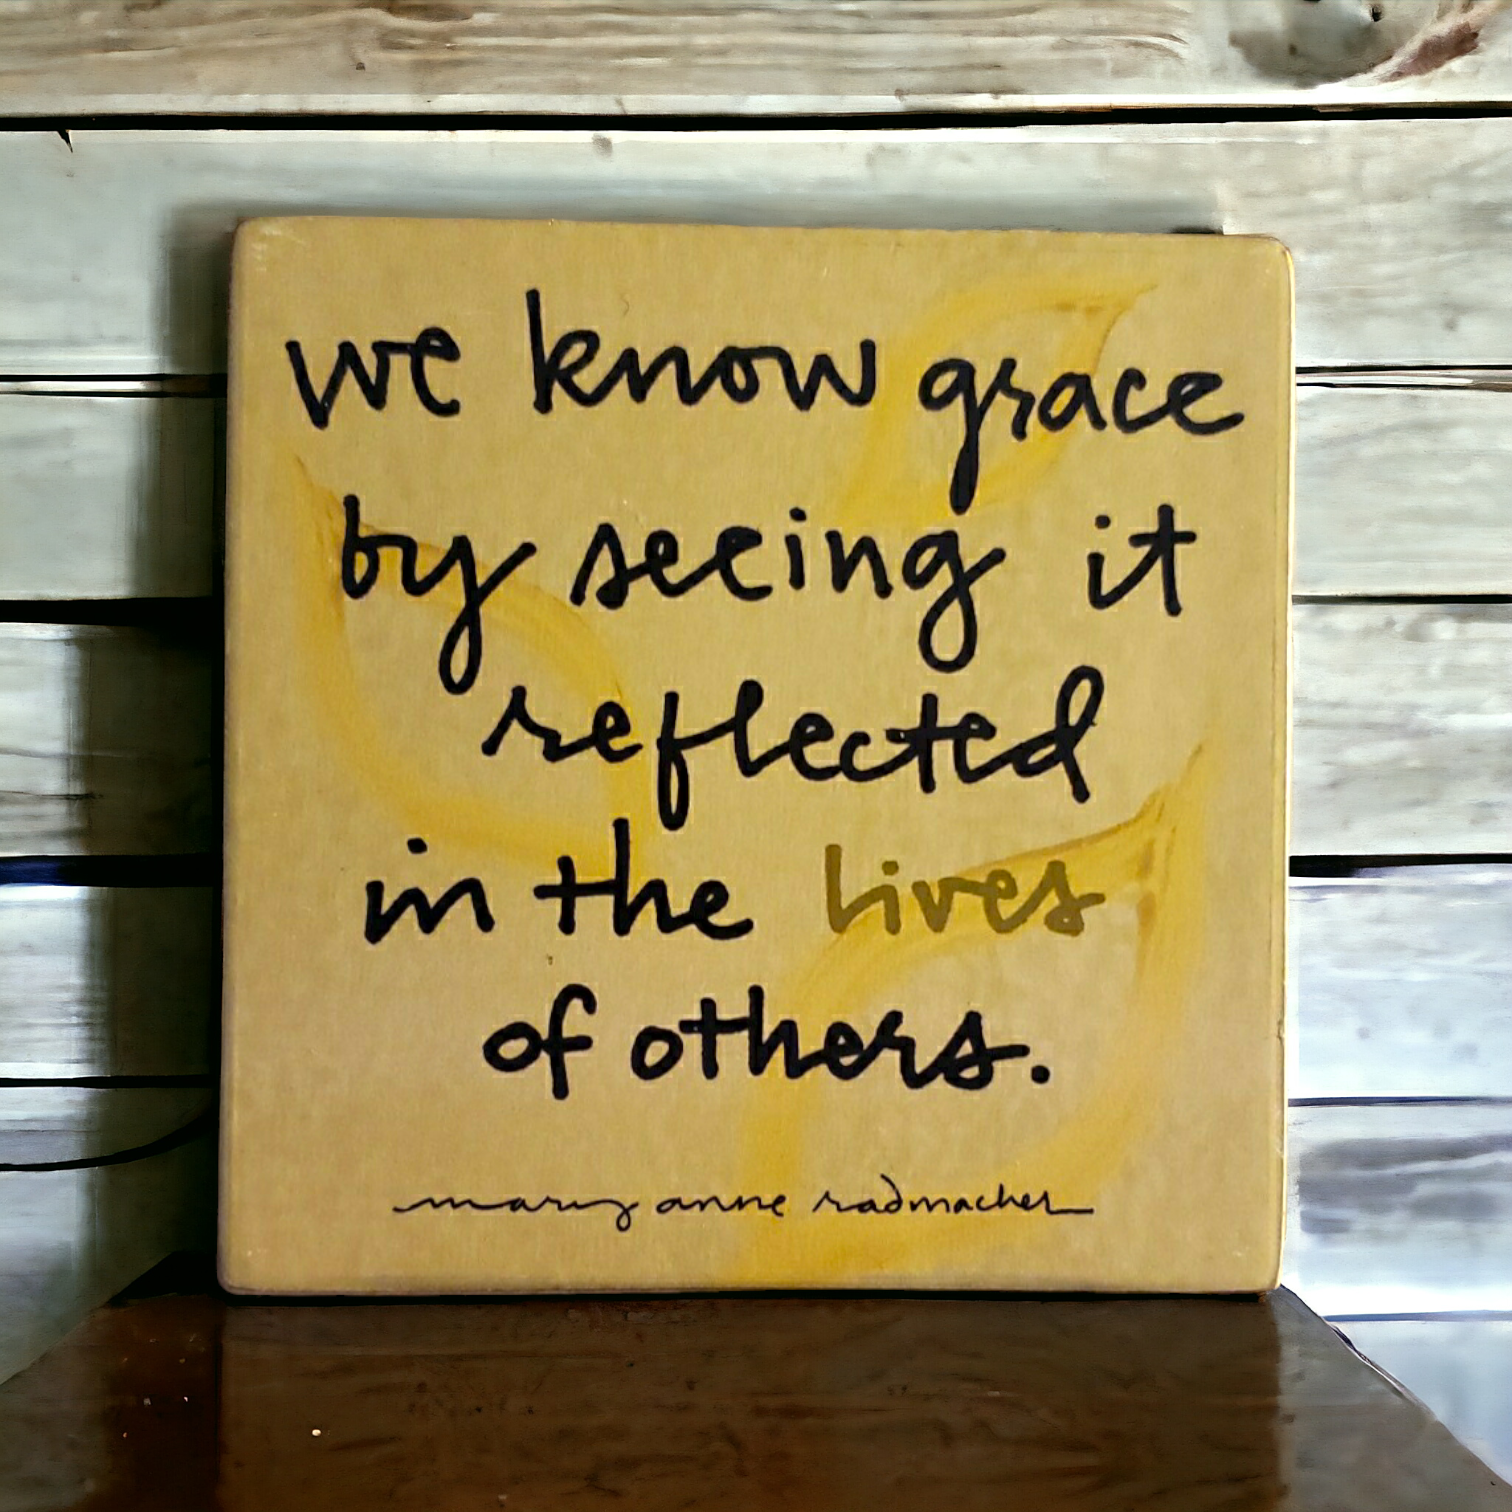 we know grace
by seeing it
reflected
in the lives
of others.
mary anne radmacher